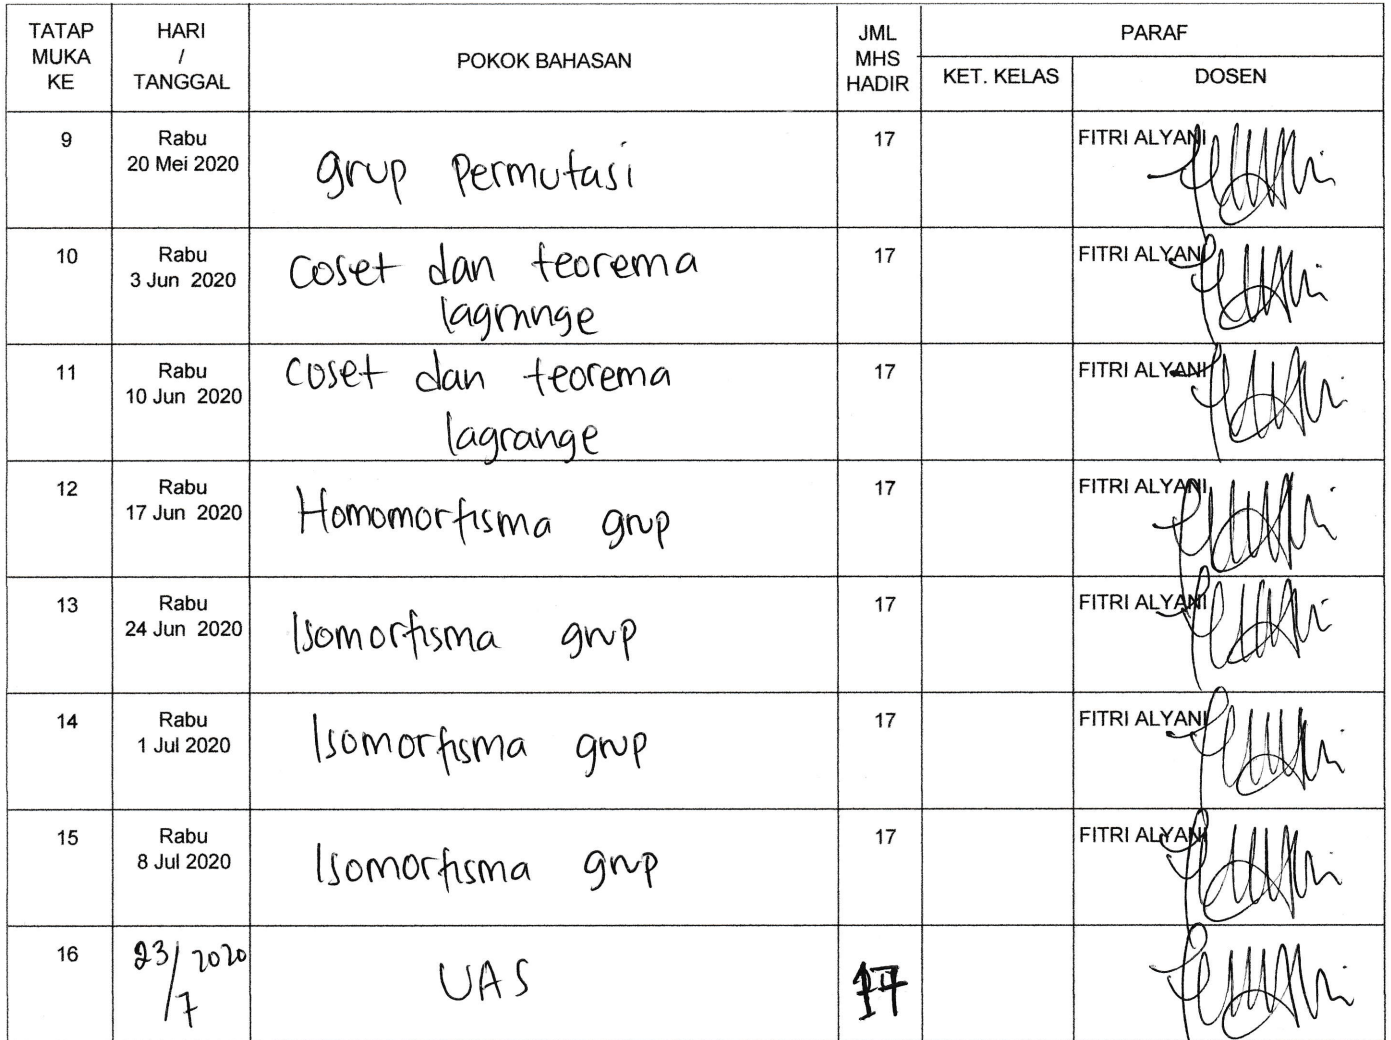 TATAP MUKA KE
HARI / TANGGAL
POKOK BAHASAN
JML MHS HADIR
PARAF
KET. KELAS
DOSEN
9
Rabu
20 Mei 2020
grup permutasi
17
FITRI ALYANI
10
Rabu
3 Jun 2020
coset dan teorema
lagrange
17
FITRI ALYANI
11
Rabu
10 Jun 2020
coset dan teorema
lagrange
17
FITRI ALYANI
12
Rabu
17 Jun 2020
Homomorfisma grup
17
FITRI ALYANI
13
Rabu
24 Jun 2020
Isomorfisma grup
17
FITRI ALYANI
14
Rabu
1 Jul 2020
Isomorfisma grup
17
FITRI ALYANI
15
Rabu
8 Jul 2020
Isomorfisma grup
17
FITRI ALYANI
16
23/7 2020
UAS
17